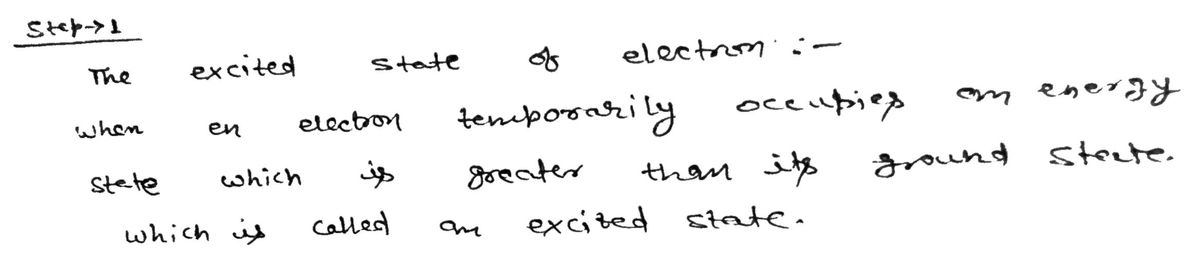 Step→1
The excited state of electron :-
when en electron temporarily occupies an energy
state which is greater than its ground state.
which is called an excited state.